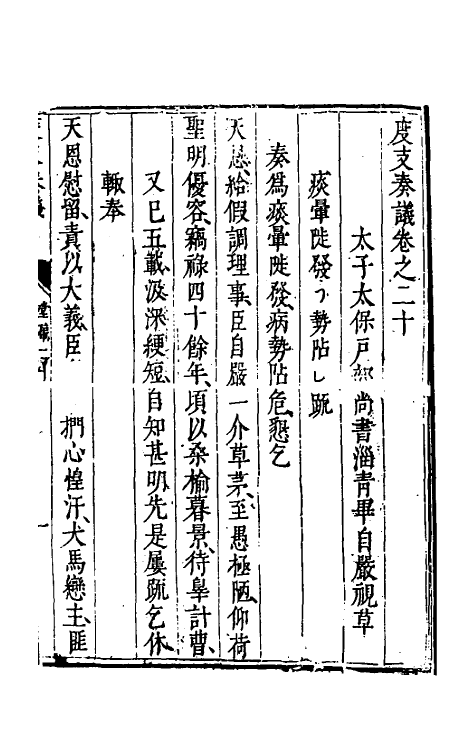 度支奏議卷之二十
太子太保戶部尚書淄青畢自嚴視草
痰暈陡發勢阽疏
奏為痰暈陡發病勢阽危懇乞
天恩給假調理事臣自嚴一介草茅至愚極陋仰荷
聖明優容竊祿四十餘年頃以桑榆暮景待辠計曹
又已五載汲深綆短自知甚明先是屢疏乞休
輙奉
天恩慰留責以大義臣捫心惶汗犬馬戀主匪
堂稿
一